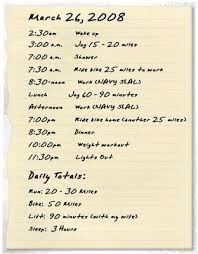 March 26, 2008
2:30am Wake up
3:00 a.m. Jog 15-20 miles
7:00 a.m. Shower
7:30am Ride bike 25 miles to work
8:30-noon Work (NAVY SEAL)
Lunch Jog 60-90 minutes
Afternoon Work (NAVY SEAL)
7:00pm Ride bike home (another 25 miles)
8:30pm Dinner
10:00pm Weight workout
11:30pm Lights Out
Daily Totals:
Run: 20-30 Miles
Bike: 50 Miles
Lift: 90 minutes (with my wife)
Sleep: 3 Hours